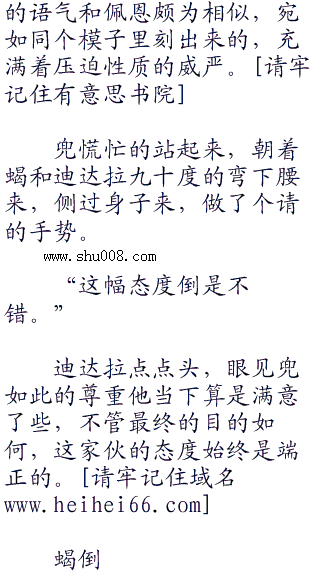 的语气和佩恩颇为相似，宛
如同个模子里刻出来的，充
满着压迫性质的威严。[请牢
记住有意思书院]
兜慌忙的站起来，朝着
蝎和迪达拉九十度的弯下腰
来，侧过身子来，做了个请
的手势。
www.shu008.com
“这幅态度倒是不
错。”
迪达拉点点头，眼见兜
如此的尊重他当下算是满意
了些，不管最终的目的如
何，这家伙的态度始终是端
正的。[请牢记住域名
www.heihei66.com]
蝎倒